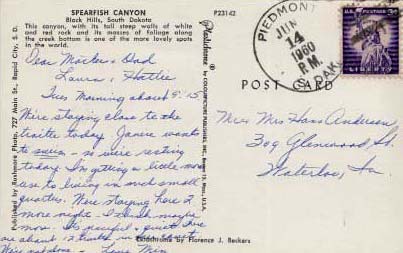 SPEARFISH CANYON
Black Hills, South Dakota
This canyon, with its tall steep walls of white
and red rock and its masses of foliage along
the creek bottom is one of the more lovely spots
in the world.
P23142
Published by Rushmore Photo, 727 Main St., Rapid City, S.D.
Plastichrome by COLOURPICTURE PUBLISHERS, INC., Boston 15, Mass., U.S.A.
PIEDMONT
JUN
14
P.M.
1960
S. DAK.
3¢
LIBERTY
POST CARD
Dear Mother & Dad
Laura & Hattie
Tues Morning about 9:15
We're staying close to the
trailer today. Janice wants
to swim - so we're resting
today. I'm getting a little more
use to living in such small
quarters. We're staying here 2
more night - I think maybe
more. It's peaceful & quiet here
are about 12 trailers in the court
We're not alone - Love Min
Mr & Mrs Hans Andersen
309 Glenwood St.
Waterloo, Ia.
Ektachrome by Florence J. Beckers